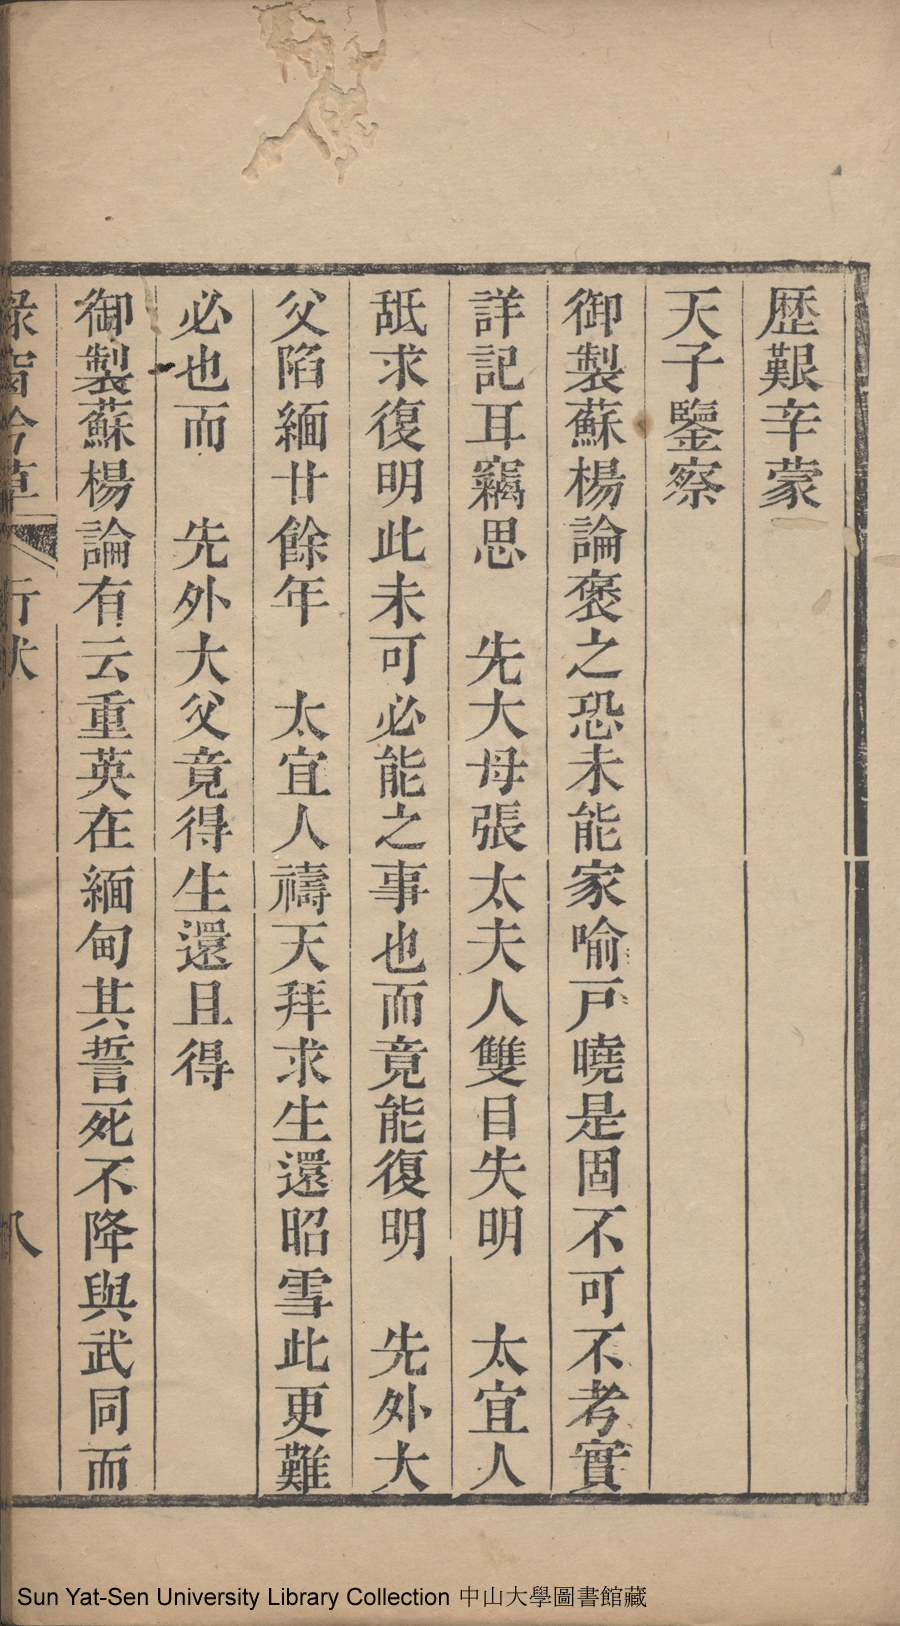 歷艱辛蒙
天子鑒察
御製蘇楊論褒之恐未能家喻戸曉是固不可不考實
詳記耳竊思　先大母張太夫人雙目失明　太宜人
舐求復明此未可必能之事也而竟能復明　先外大
父陷緬廿餘年　太宜人禱天拜求生還昭雪此更難
必也而　先外大父竟得生還且得
御製蘇楊論有云重英在緬甸其誓死不降與武同而
行狀
八
Sun Yat-Sen University Library Collection 中山大學圖書館藏